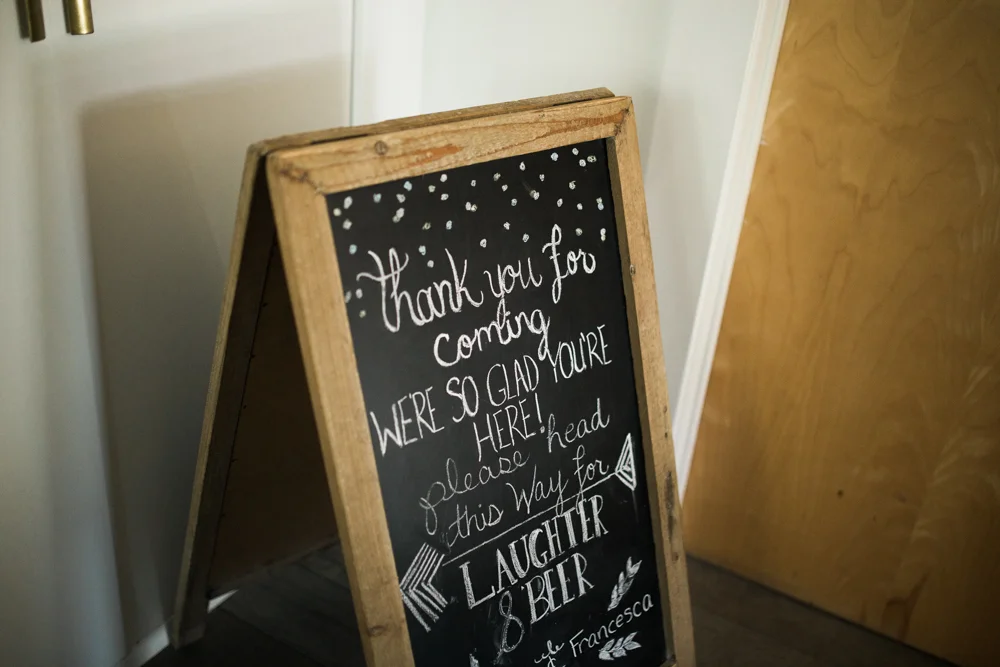 Thank you for
coming
WE'RE SO GLAD YOU'RE
HERE!
please head
this Way for
LAUGHTER
& BEER
Francesca